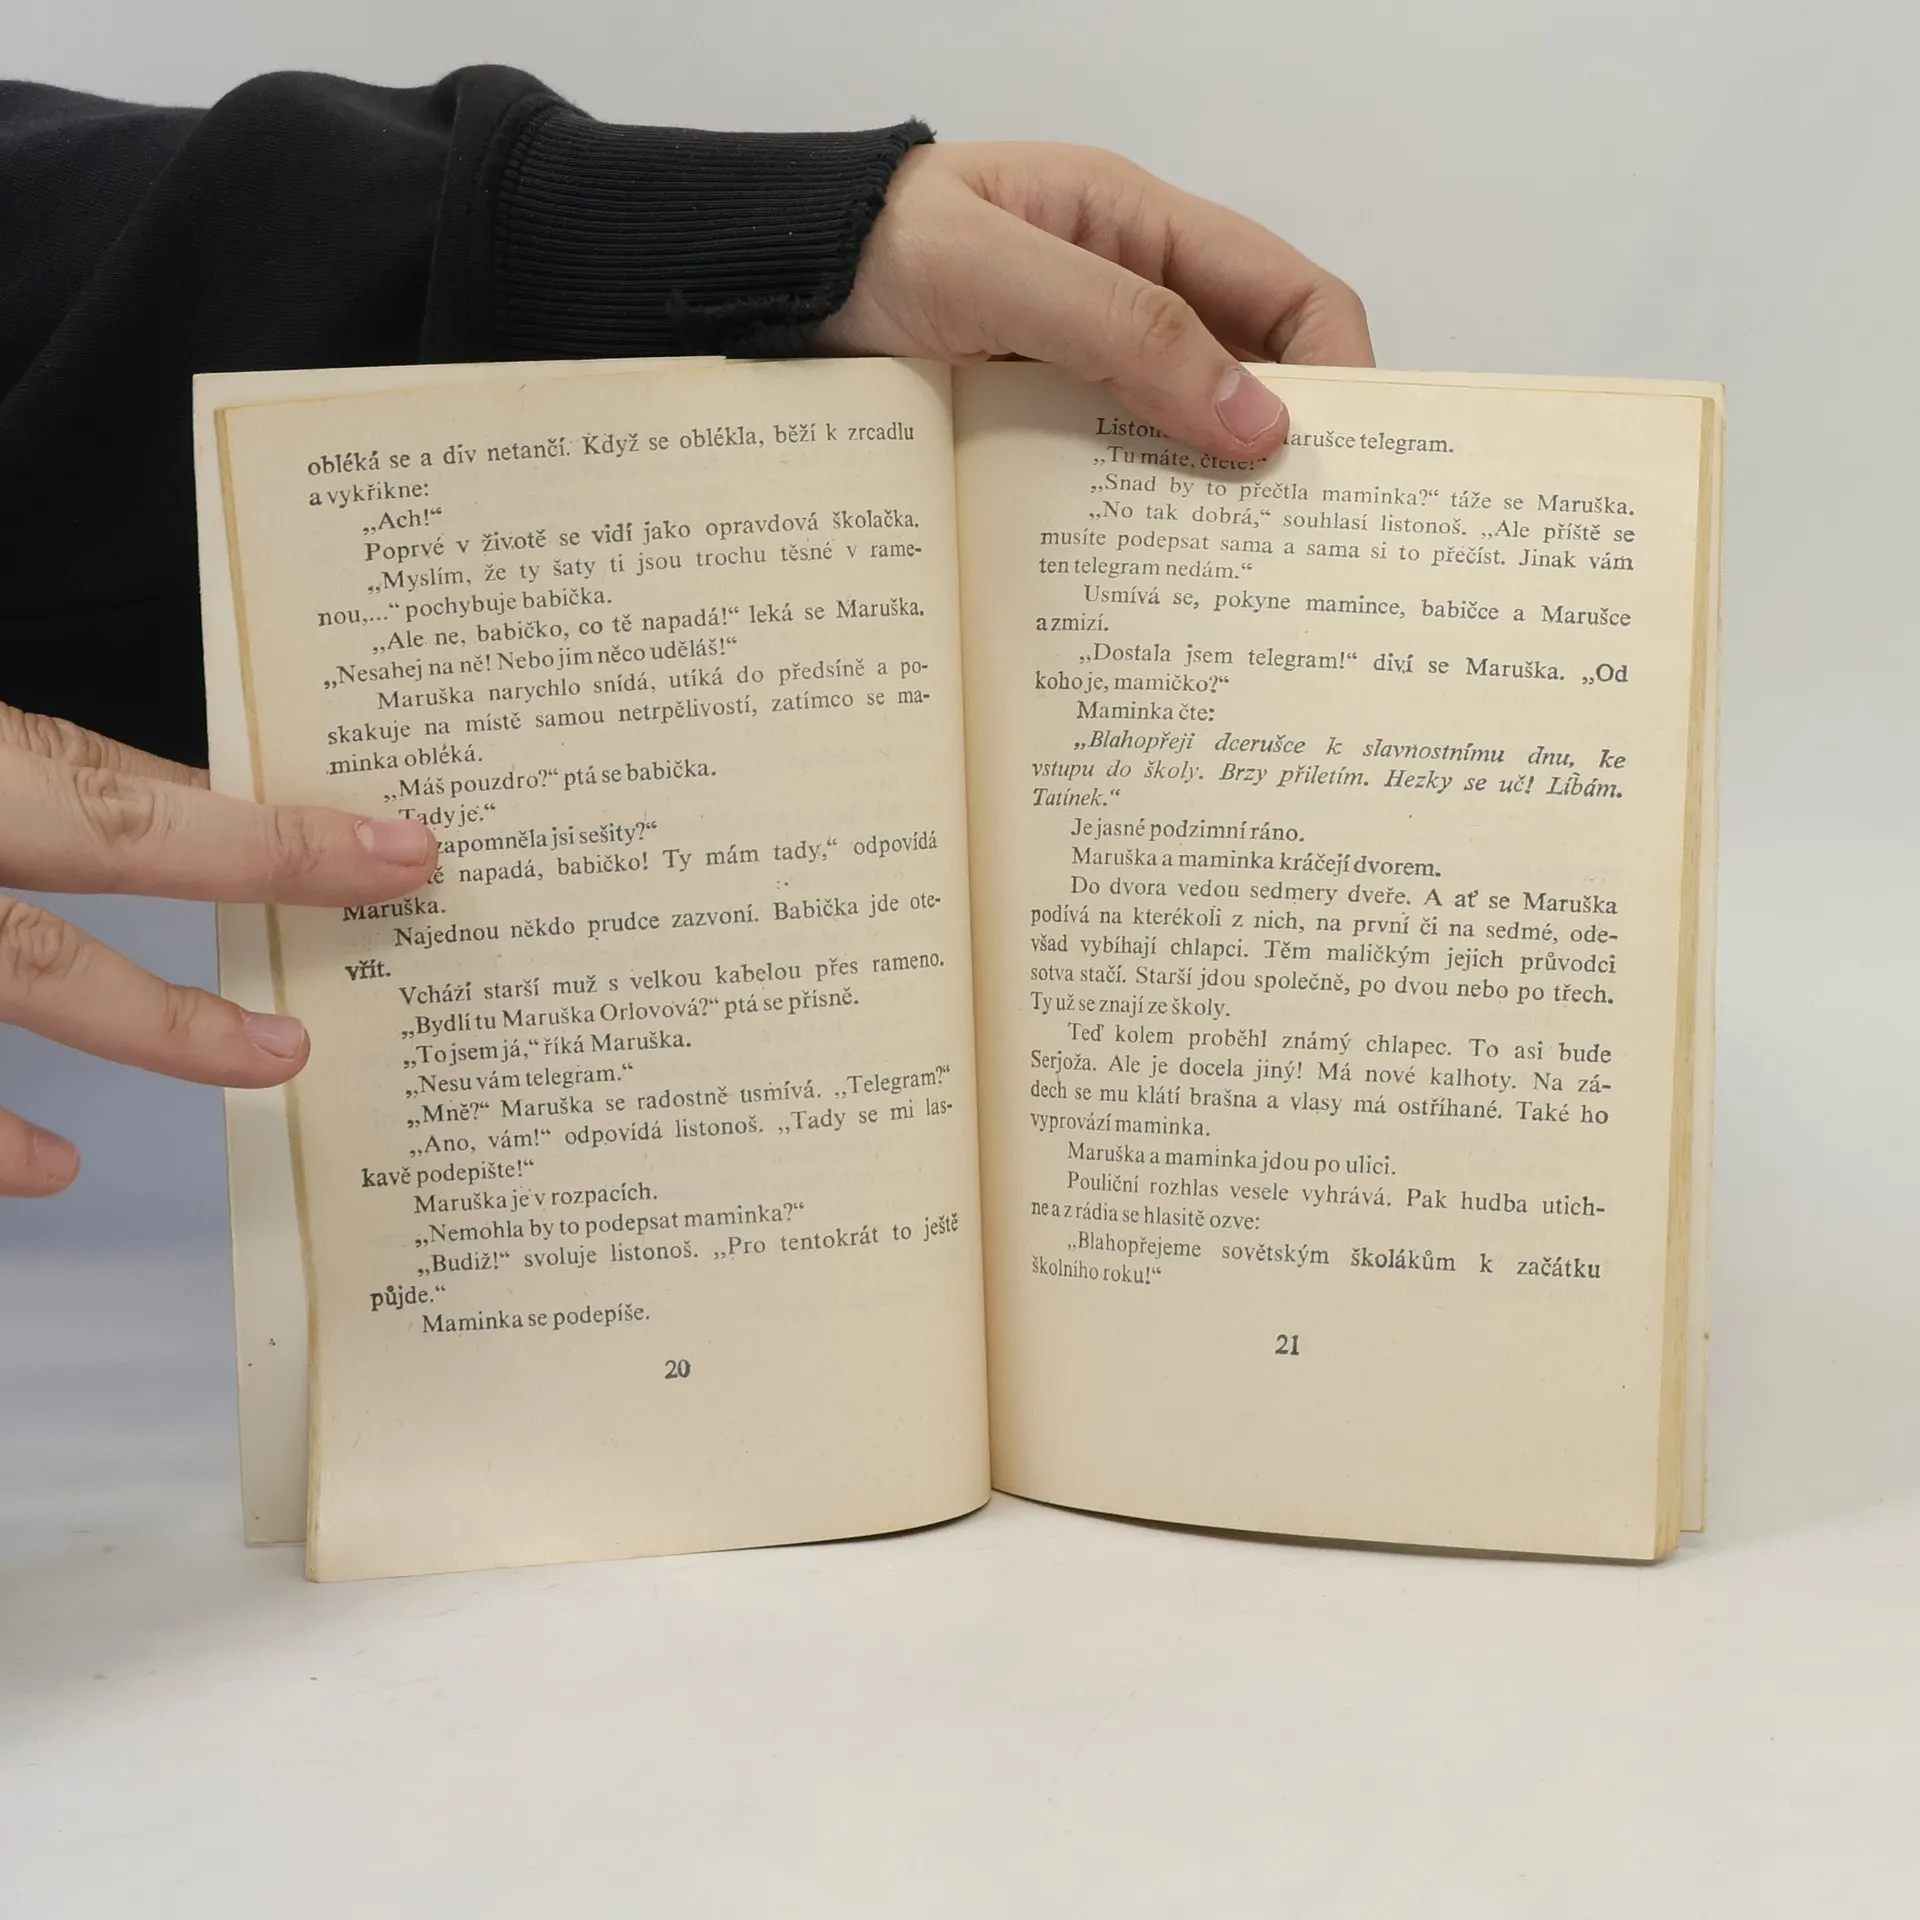 obléká se a div netančí. Když se oblékla, běží k zrcadlu
a vykřikne:
„Ach!“
Poprvé v životě se vidí jako opravdová školačka.
„Myslím, že ty šaty ti jsou trochu těsné v rame-
nou,...“ pochybuje babička.
„Ale ne, babičko, co tě napadá!“ leká se Maruška.
„Nesahej na ně! Nebo jim něco uděláš!“
Maruška narychlo snídá, utíká do předsíně a po-
skakuje na místě samou netrpělivostí, zatímco se ma-
minka obléká.
„Máš pouzdro?“ ptá se babička.
„Tady je.“
zapomněla jsi sešity?“
tě napadá, babičko! Ty mám tady,“ odpovídá
Maruška.
Najednou někdo prudce zazvoní. Babička jde ote-
vřít.
Vchází starší muž s velkou kabelou přes rameno.
„Bydlí tu Maruška Orlovová?“ ptá se přísně.
„To jsem já,“ říká Maruška.
„Nesu vám telegram.“
„Mně?“ Maruška se radostně usmívá. „Telegram?“
„Ano, vám!“ odpovídá listonoš. „Tady se mi las-
kavě podepište!“
Maruška je v rozpacích.
„Nemohla by to podepsat maminka?“
„Budiž!“ svoluje listonoš. „Pro tentokrát to ještě
půjde.“
Maminka se podepíše.
20
telegram.
„Tu máte, čtěte!“
„Snad by to přečtla maminka?“ táže se Maruška.
„No tak dobrá,“ souhlasí listonoš. „Ale příště se
musíte podepsat sama a sama si to přečíst. Jinak vám
ten telegram nedám.“
Usmívá se, pokyne mamince, babičce a Marušce
a zmizí.
„Dostala jsem telegram!“ diví se Maruška. „Od
koho je, mamičko?“
Maminka čte:
„Blahopřeji dcerušce k slavnostnímu dnu, ke
vstupu do školy. Brzy přiletím. Hezky se uč! Líbám.
Tatínek.“
Je jasné podzimní ráno.
Maruška a maminka kráčejí dvorem.
Do dvora vedou sedmery dveře. A ať se Maruška
podívá na kterékoli z nich, na první či na sedmé, ode-
všad vybíhají chlapci. Těm maličkým jejich průvodci
sotva stačí. Starší jdou společně, po dvou nebo po třech.
Ty už se znají ze školy.
Teď kolem proběhl známý chlapec. To asi bude
Serjoža. Ale je docela jiný! Má nové kalhoty. Na zá-
dech se mu klátí brašna a vlasy má ostříhané. Také ho
vyprovází maminka.
Maruška a maminka jdou po ulici.
Pouliční rozhlas vesele vyhrává. Pak hudba utich-
ne a z rádia se hlasitě ozve:
„Blahopřejeme sovětským školákům k začátku
školního roku!“
21